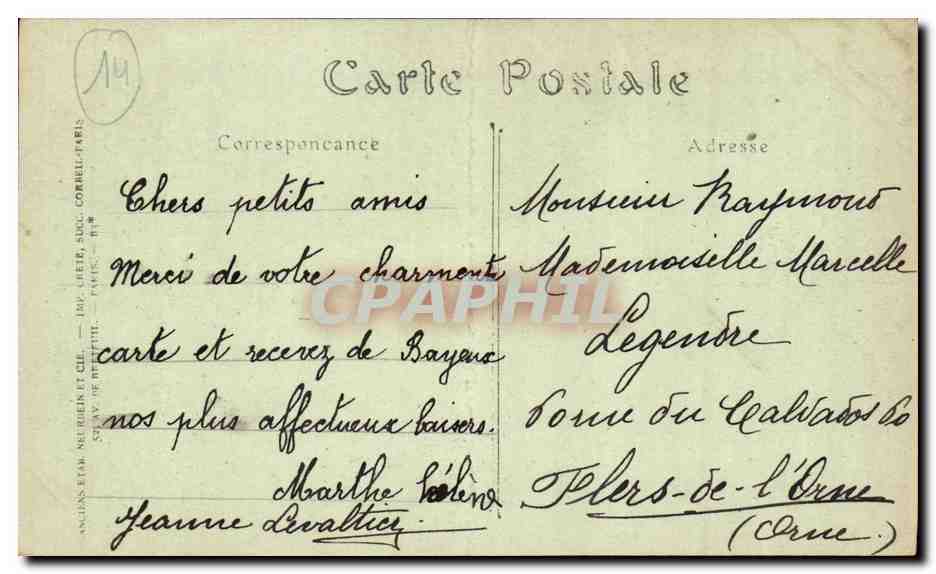 14
Carte Postale
Correspondance
Adresse
Chers petits amis
Merci de votre charmente
carte et recevez de Bayeux
nos plus affectueux baisers.
Marthe hélène
Jeanne Levaltier
Monsieur Raymond
Mademoiselle Marcelle
Legendre
du Calvados 60
Flers-de-l'Orne
(Orne.)
ANCIENS ETAB. NEURDEIN ET CIE. — IMP. CRÉTÉ, SUCC. CORBEIL-PARIS
52, AV. DE BRETEUIL. — PARIS.
CPAPHIL